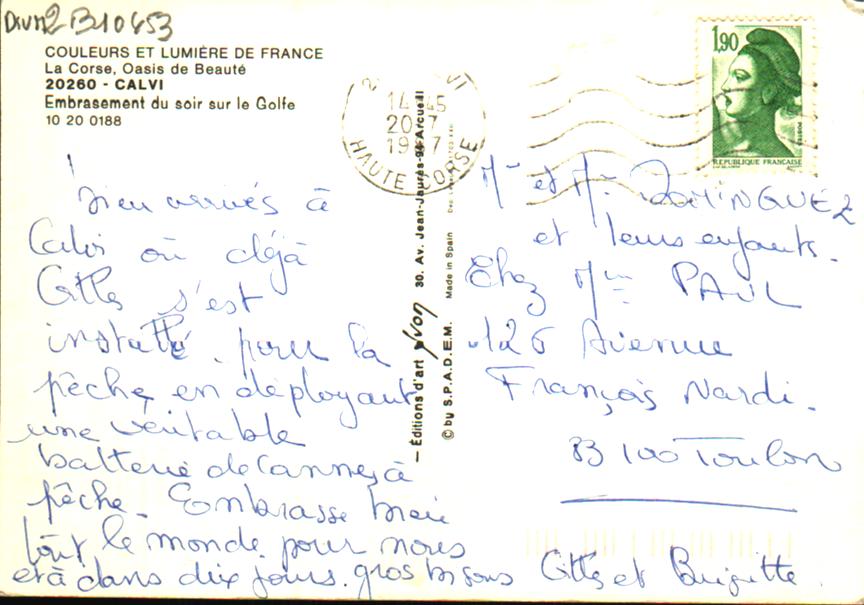 DIVM2B10453
COULEURS ET LUMIÈRE DE FRANCE
La Corse, Oasis de Beauté
20260 - CALVI
Embrasement du soir sur le Golfe
10 20 0188
14 45
20-7
HAUTE CORSE
1,90
REPUBLIQUE FRANÇAISE
bien arrivés à
Calvi où déjà
Gilles s'est
installé pour la
pêche en déployant
une véritable
batterie de cannes à
pêche. Embrasse bien
tout le monde pour nous
et à dans dix jours. gros bisous Gilles et Brigitte.
— Éditions d'art Yvon 30. Av. Jean-Jaurès-94-Arcueil
© by S.P.A.D.E.M. Made in Spain
Mr et Mme DOMINGUEZ
et leurs enfants.
Chez Mme PAUL
126 Avenue
François Nardi.
83 100 Toulon